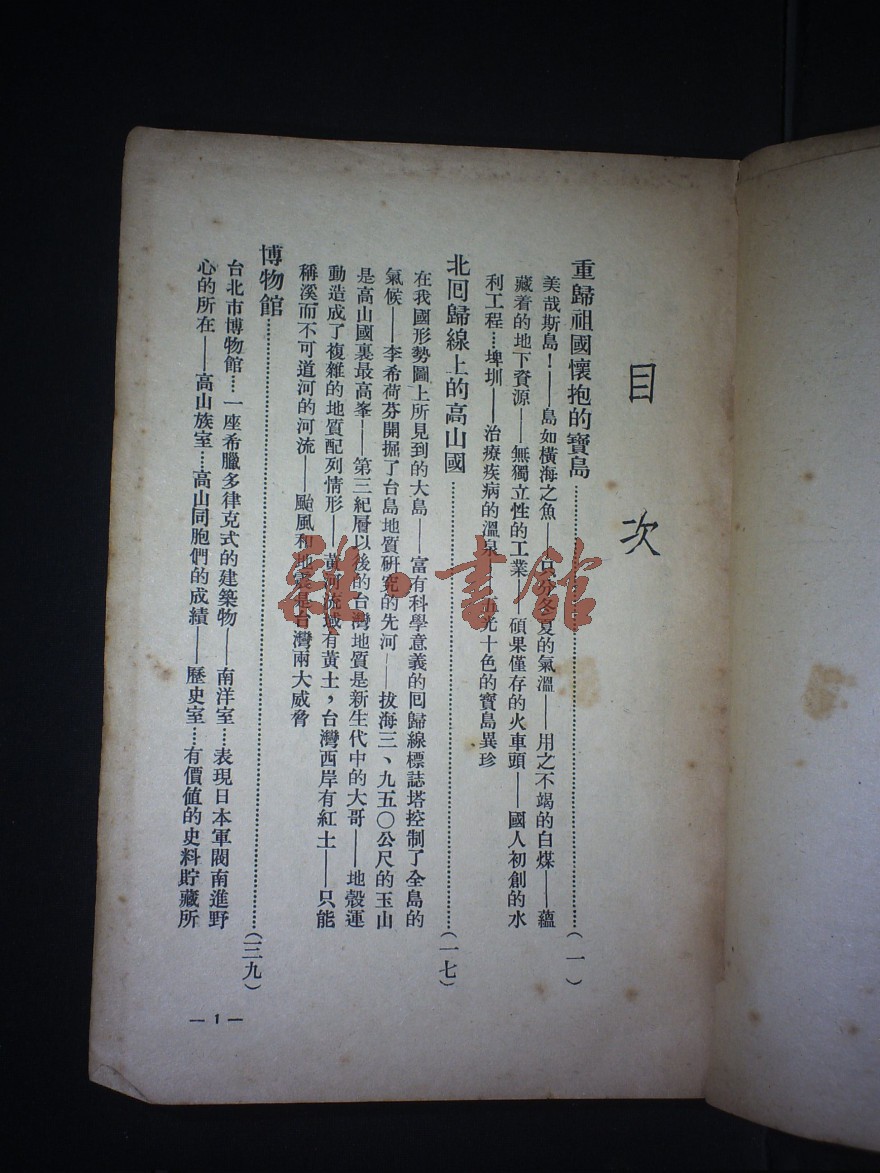 目 次
重歸祖國懷抱的寶島……………(一)
美哉斯島！——島如橫海之魚——只分冬夏的氣溫——用之不竭的白煤——蘊
藏着的地下資源——無獨立性的工業——碩果僅存的火車頭——國人初創的水
利工程…埤圳——治療疾病的溫泉——五光十色的寶島異珍
北回歸線上的高山國……………(一七)
在我國形勢圖上所見到的大島——富有科學意義的回歸線標誌塔控制了全島的
氣候——李希荷芬開掘了台島地質研究的先河——拔海三、九五〇公尺的玉山
是高山國裏最高峯——第三紀層以後的台灣地質是新生代中的大哥——地殼運
動造成了複雜的地質配列情形——黃河流域有黃土，台灣西岸有紅土——只能
稱溪而不可道河的河流——颱風和地震是台灣兩大威脅
博物館……………(三九)
台北市博物館…一座希臘多律克式的建築物——南洋室…表現日本軍閥南進野
心的所在——高山族室…高山同胞們的成績——歷史室…有價值的史料貯藏所
— 1 —
書館